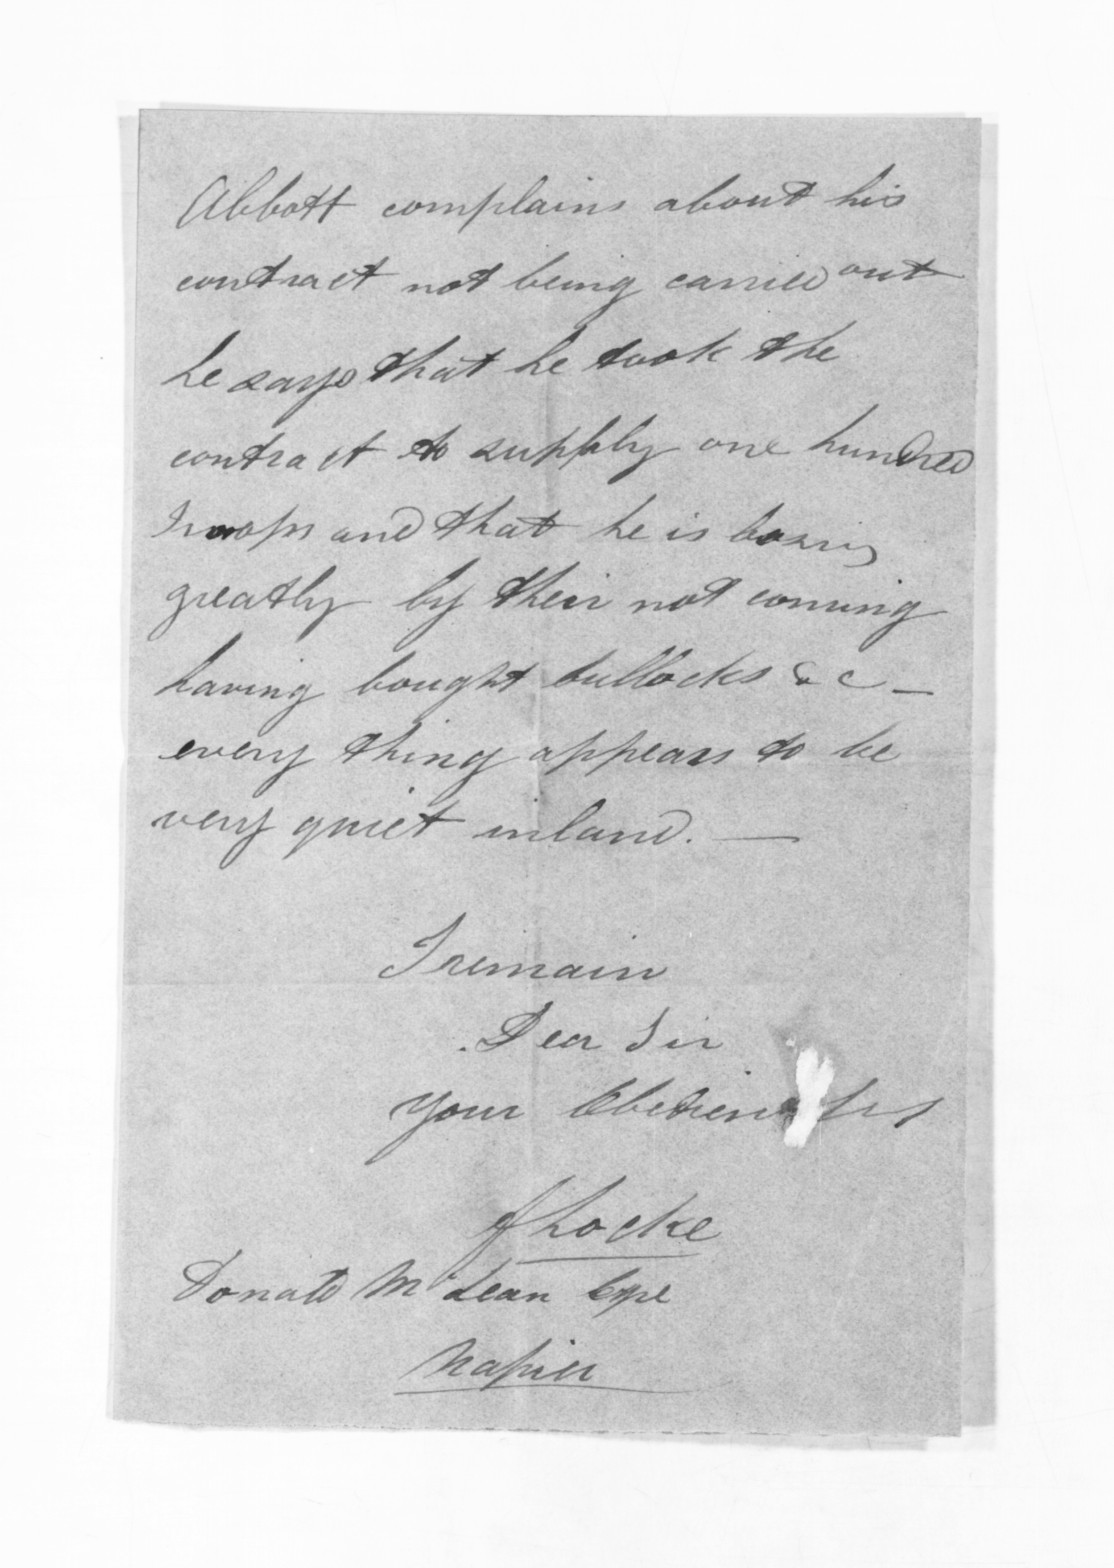 Abbott complains about his
contract not being carried out
he says that he took the
contract to supply one hundred
Troops and that he is loosing
greatly by their not coming
having bought bullocks &c –
every thing appears to be
very quiet inland. —
I remain
Dear Sir
your Obedient
Locke
Donald McLean Esqre
Napier